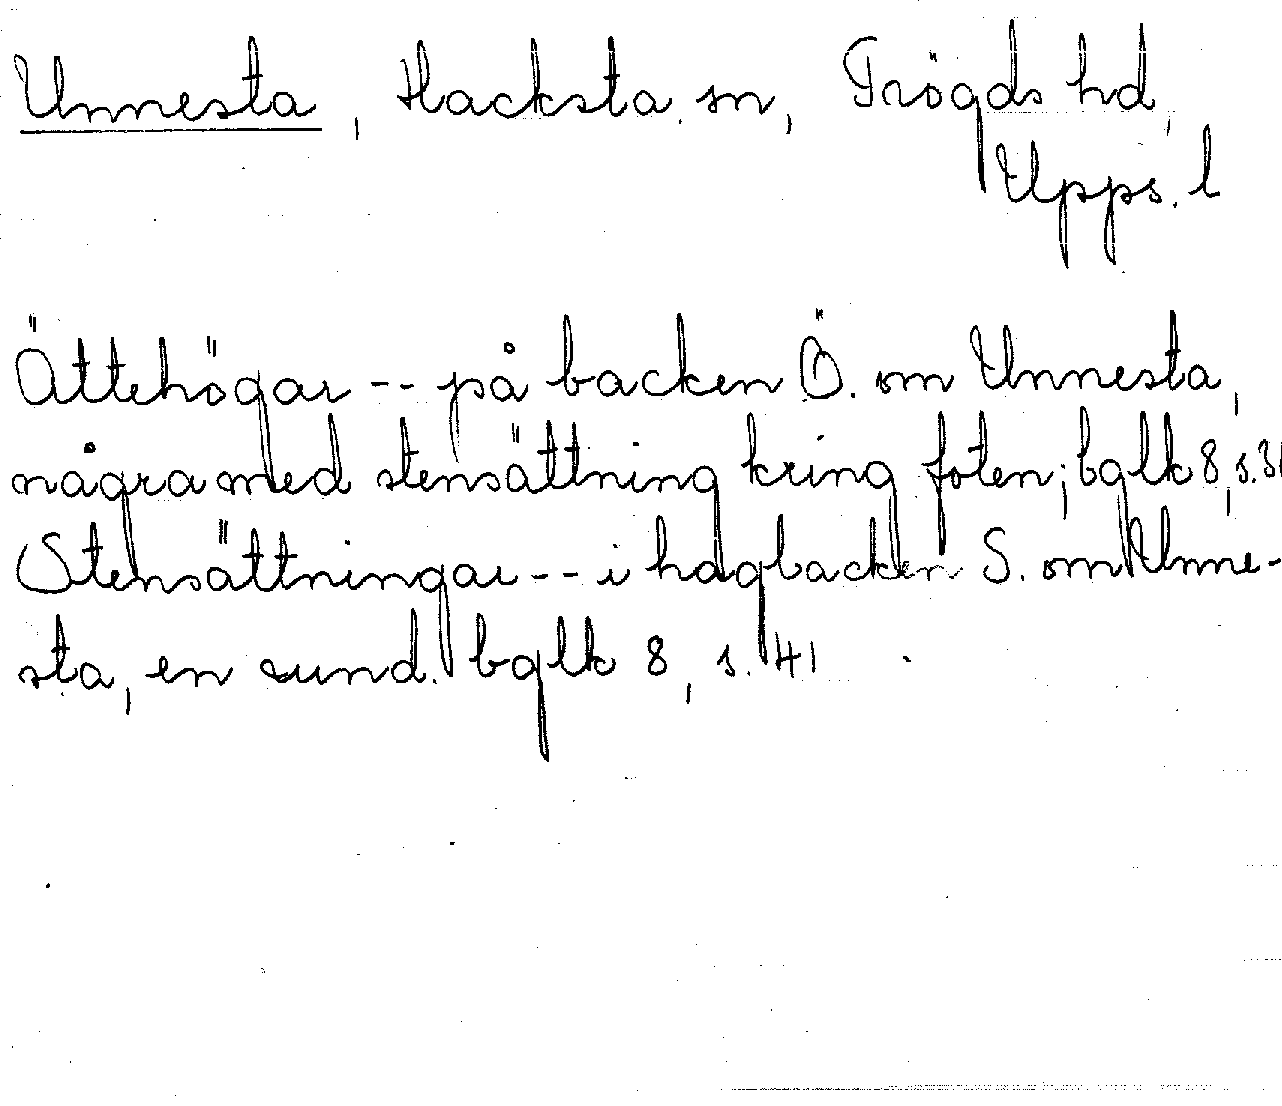 Unnesta, Hacksta sn, Trögds hd,
Upps. l
Ättehögar -- på backen Ö. om Unnesta,
några med stensättning kring foten; bglk 8, s. 31
Stensättningar -- i hagbacken S. om Unne-
sta, en sund. bglk 8, s. 41